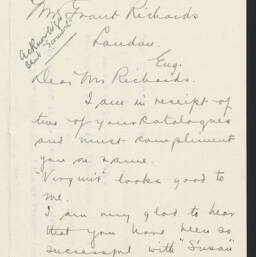 Mr Grant Richards
London.
Eng.
Dear Mr Richards.
I am in receipt of
two of your Catalogues
and must compliment
you on same.
"Virginie" looks good to
me.
I am very glad to hear
that you have been so
successful with "Susan"